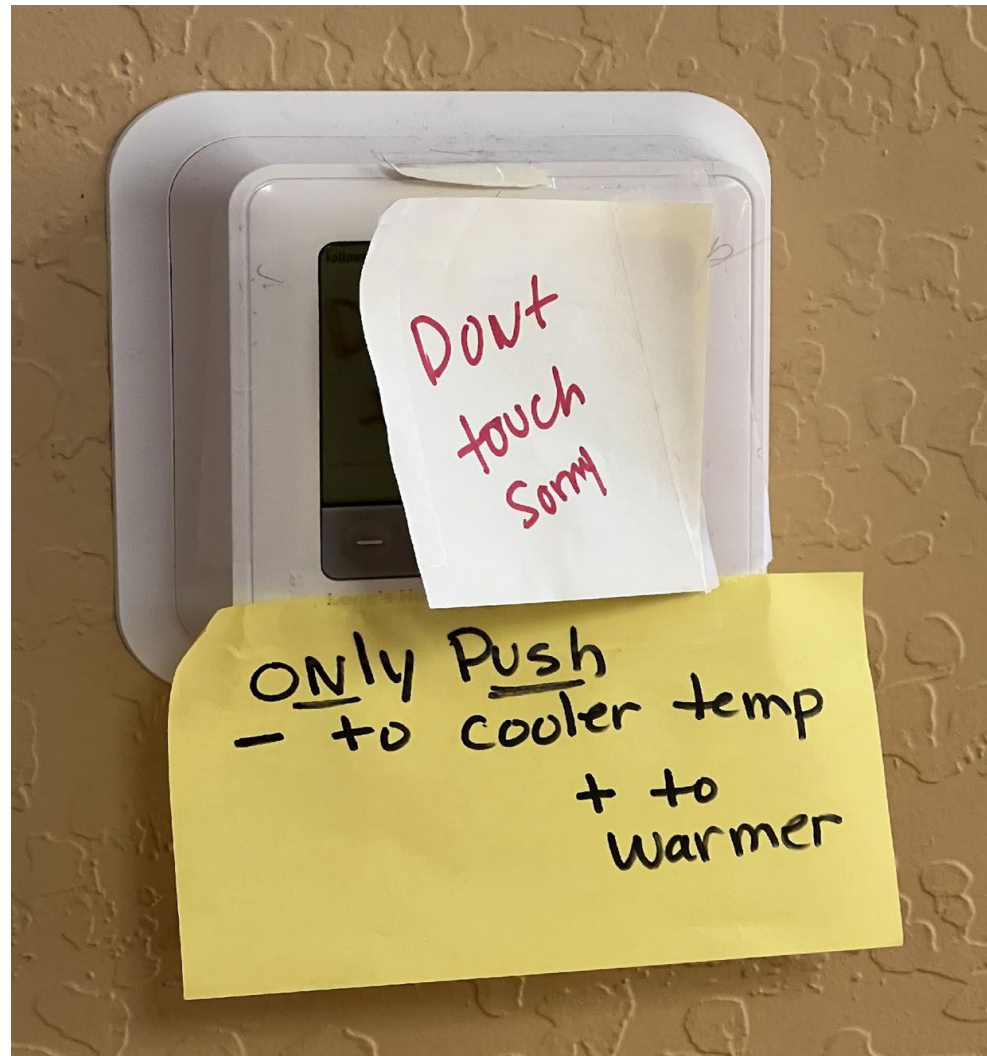 Follow
Dont
touch
Sorry
ONly Push
- to cooler temp
+ to
warmer